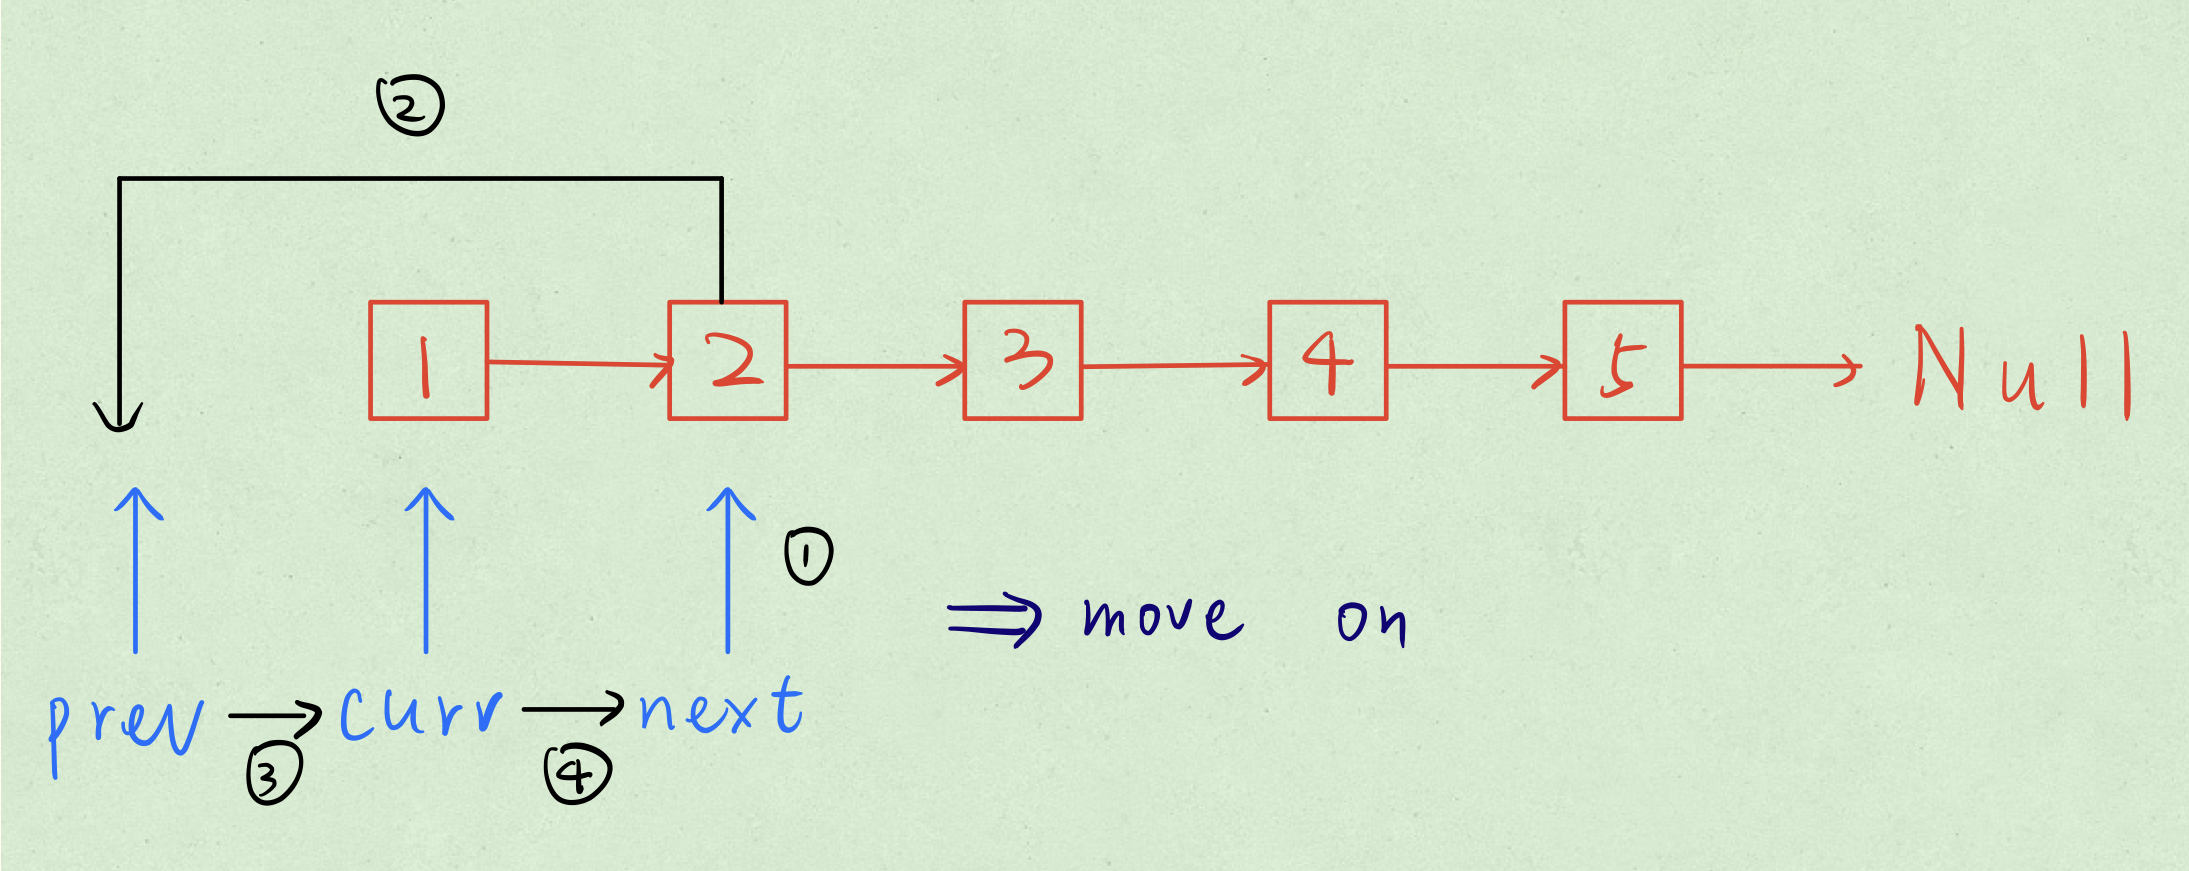 ②
1 2 3 4 5 Null
①
⇒ move on
prev → curr → next
③ ④